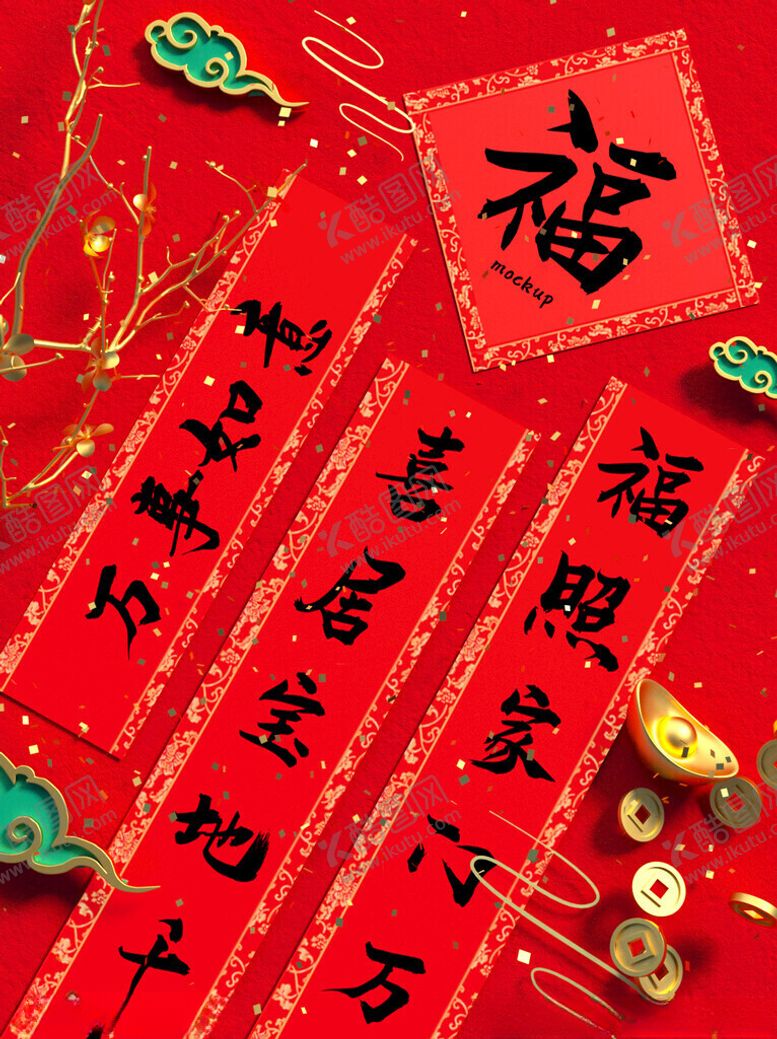 福
mockup
万事如意
喜居宝地千
福照家门万
酷图网
www.ikutu.com